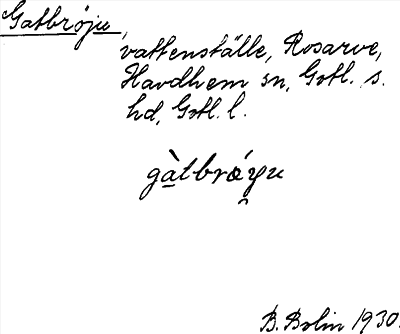 Gatbröju,
vattenställe, Rosarve,
Havdhem sn, Gotl. s.
hd, Gotl. l.
gàtbrǿyu
B. Bolin 1930.